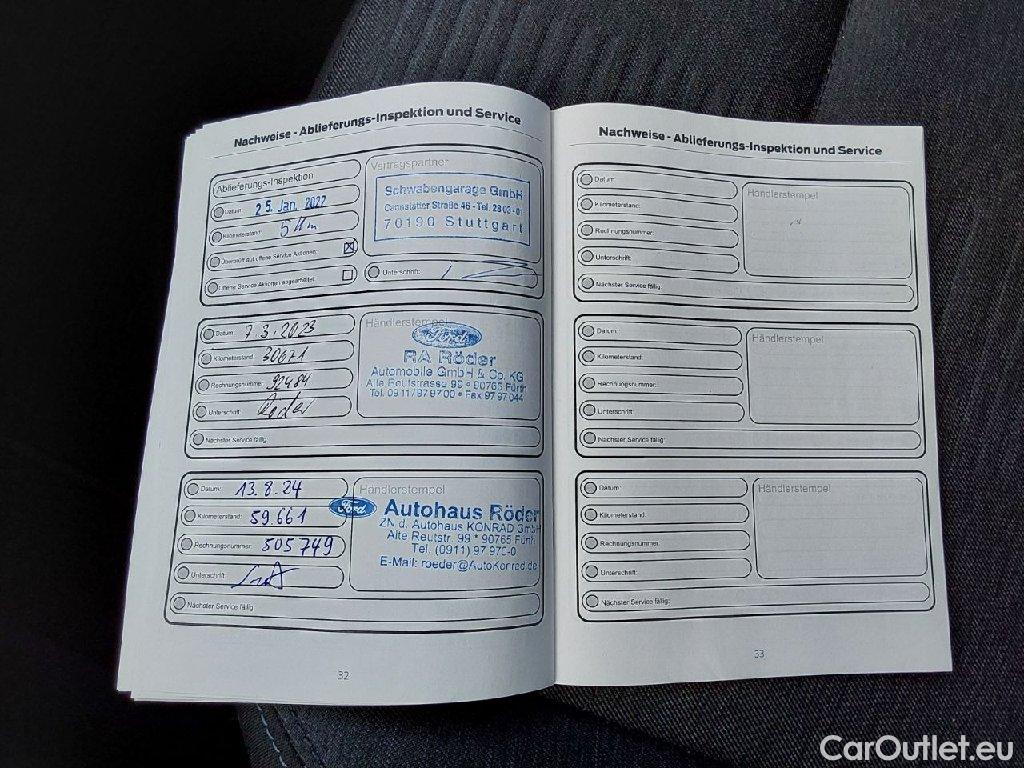 Nachweise - Ablieferungs-Inspektion und Service
Ablieferungs-Inspektion
Datum: 25. Jan. 2022
Kilometerstand: 5 km
Überprüft auf offene Service Aktionen:
Offene Service Aktionen
Vertragspartner
Schwabengarage GmbH
Cannstatter Straße 46 - Tel. 2803-01
70190 Stuttgart
Unterschrift:
Datum: 7.3.2023
Kilometerstand: 30671
Rechnungsnummer: 92484
Unterschrift:
Nächster Service fällig:
Händlerstempel
Ford
RA Röder
Automobile GmbH & Co. KG
Alte Reutstrasse 99 • 90765 Fürth
Tel. 0911/979700 • Fax 9797044
Datum: 13.8.24
Kilometerstand: 59.661
Rechnungsnummer: 505749
Unterschrift:
Nächster Service fällig:
Händlerstempel
Ford Autohaus Röder
ZN d. Autohaus KONRAD GmbH
Alte Reutstr. 99 * 90765 Fürth
Tel. (0911) 97 970-0
E-Mail: roeder@AutoKonrad.de
32
Nachweise - Ablieferungs-Inspektion und Service
Datum:
Kilometerstand:
Rechnungsnummer:
Unterschrift:
Nächster Service fällig:
Händlerstempel
Datum:
Kilometerstand:
Rechnungsnummer:
Unterschrift:
Nächster Service fällig:
Händlerstempel
Datum:
Kilometerstand:
Rechnungsnummer:
Unterschrift:
Nächster Service fällig:
Händlerstempel
33
CarOutlet.eu